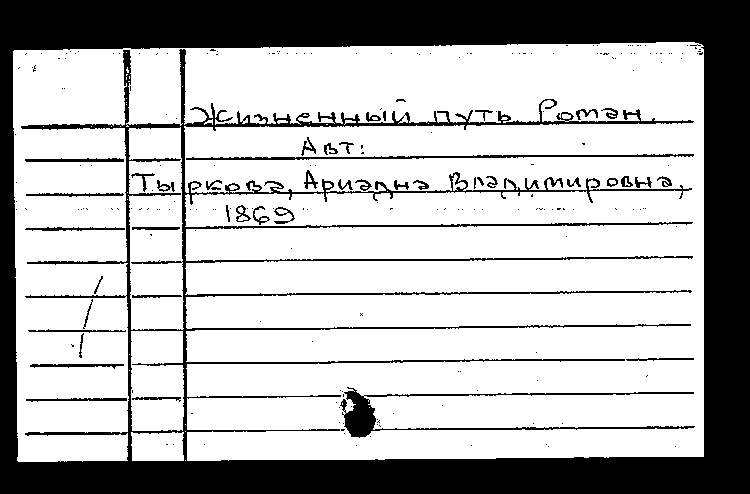 Жизненный путь Роман.
Авт:
Тыркова, Ариадна Владимировна,
1869